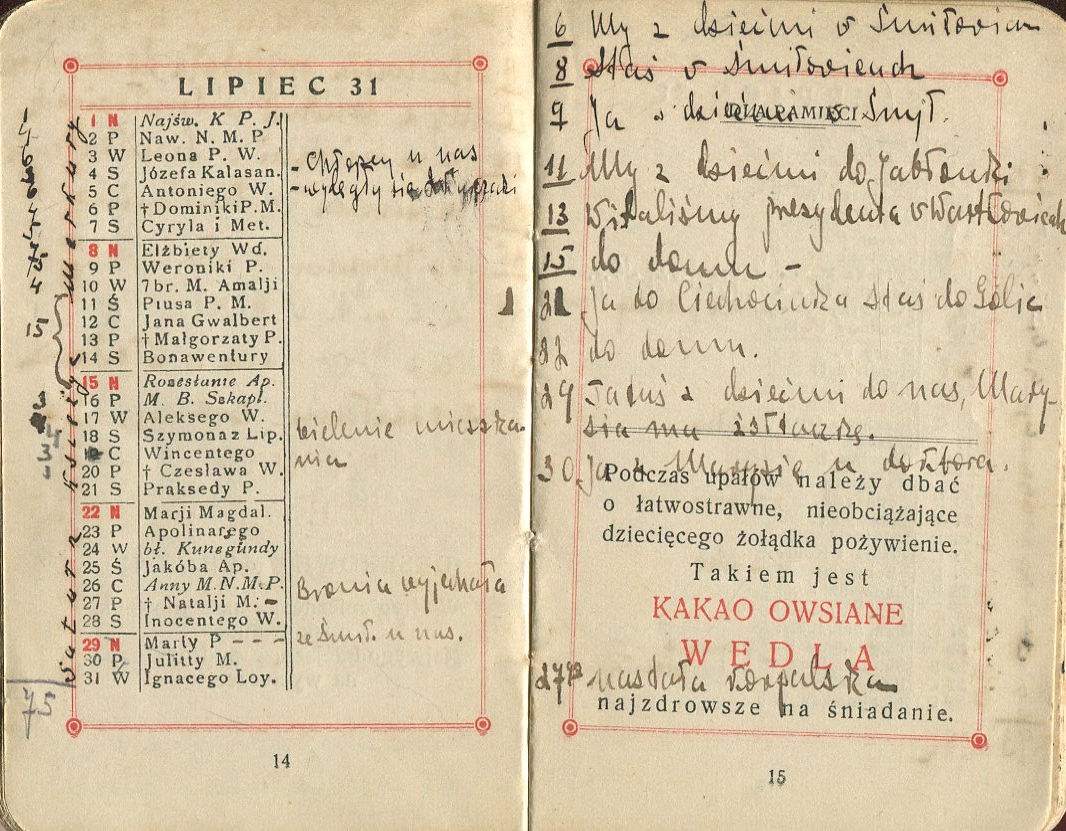 LIPIEC 31
1 N Najśw. K P. J.
2 P Naw. N. M. P
3 W Leona P. W.
4 S Józefa Kalasan.
5 C Antoniego W.
6 P † Dominiki P. M.
7 S Cyryla i Met.
8 N Elżbiety Wd.
9 P Weroniki P.
10 W 7 br. M. Amalji
11 Ś Piusa P. M.
12 C Jana Gwalbert
13 P † Małgorzaty P.
14 S Bonawentury
15 N Rozesłanie Ap.
16 P M. B. Szkapl.
17 W Aleksego W.
18 S Szymona z Lip.
19 C Wincentego
20 P † Czesława W.
21 S Praksedy P.
22 N Marji Magdal.
23 P Apolinarego
24 W bł. Kunegundy
25 Ś Jakóba Ap.
26 C Anny M. N. M. P.
27 P † Natalji M.
28 S Inocentego W.
29 N Marty P
30 P Julitty M.
31 W Ignacego Loy.
- Chłopcy u nas
- wylęgły się
bielenie mieszka-
nia
Bronia wyjechała
ze Śmił. u nas.
Saturn Księżyc Merkury
15
75
14
6 My z dziećmi w Śmiłowicach
8 Staś w Śmiłowicach
DLA PAMIĘCI
9 Ja z dziećmi Śmił.
11 My z dziećmi do Jabłonki
13 Witaliśmy prezydenta w
15 do domu -
21 Ja do Ciechocinka Staś do
do domu.
29 Tatuś z dziećmi do nas, Mary-
sia ma żółtaczkę.
30 Ja z Marysią u doktora.
Podczas upałów należy dbać
o łatwostrawne, nieobciążające
dziecięcego żołądka pożywienie.
Takiem jest
KAKAO OWSIANE
WEDLA
27 nastała
najzdrowsze na śniadanie.
15